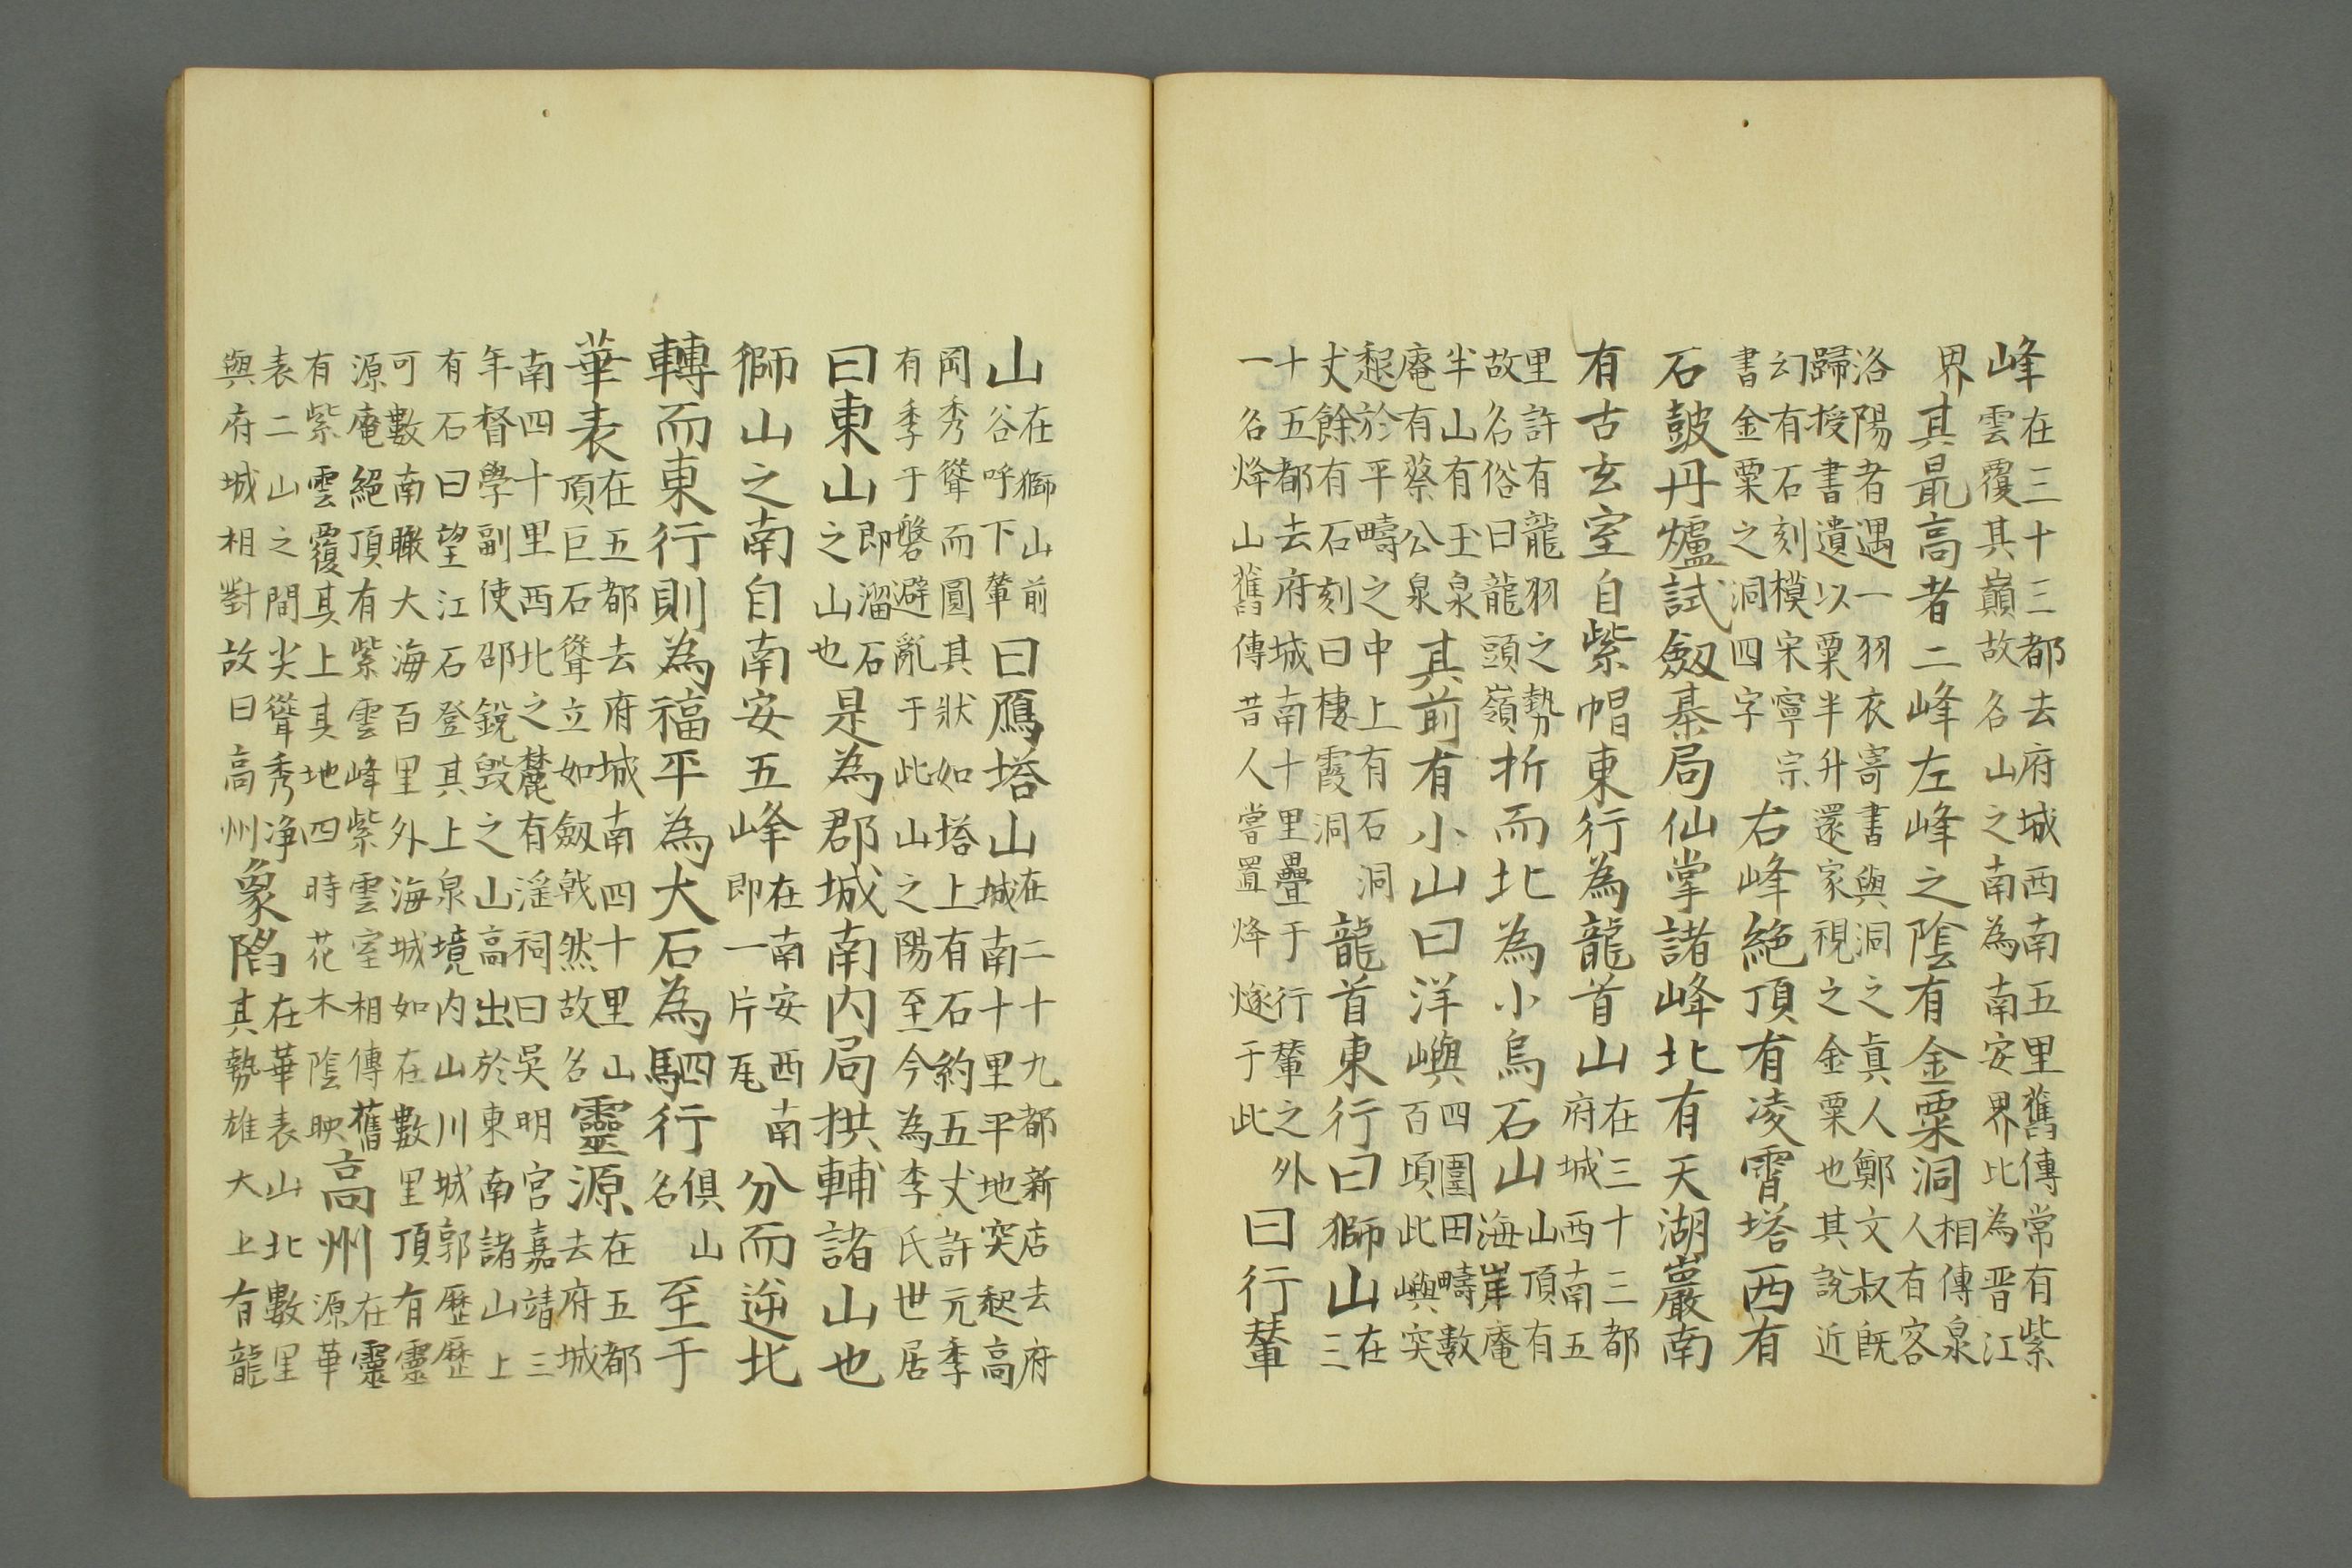 峰在三十三都去府城西南五里舊傳常有紫
雲覆其巔故名山之南為南安界比為晋江
界其最高者二峰左峰之陰有金粟洞相傳泉
人有客
洛陽者遇一羽衣寄書與洞之真人鄭文叔既
歸授書遺以粟半升還家視之金粟也其說近
幻有石刻模宋寧宗
書金粟之洞四字右峰絕頂有凌霄塔西有
石皷丹爐試劔棊局仙掌諸峰北有天湖巖南
有古玄室自紫帽東行為龍首山在三十三都
府城西南五
里許有龍羽之勢
故名俗曰龍頭嶺折而北為小烏石山山頂有
海岸庵
半山有玉泉
庵有蔡公泉其前有小山曰洋嶼四圍田疇數
百頃此嶼突
起於平疇之中上有石洞
丈餘有石刻曰棲霞洞龍首東行曰獅山在
三
十五都去府城南十里疊于行輦之外
一名烽山舊傳昔人嘗置烽燧于此曰行輦
山在獅山前
谷呼下輦曰鴈塔山在二十九都新店去府
城南十里平地突起高
岡秀聳而圓其狀如塔上有石約五丈許元季
有季于磐避亂于此山之陽至今為李氏世居
曰東山即溜石
之山也是為郡城南内局拱輔諸山也
獅山之南自南安五峰在南安西南
即一片瓦分而逆北
轉而東行則為福平為大石為駟行俱山
名至于
華表在五都去府城南四十里山
頂巨石聳立如劔戟然故名靈源在五都
去府城
南四十里西北之麓有淫祠曰吳明宮嘉靖三
年督學副使邵銳毀之山高出於東南諸山上
有石曰望江石登其上泉境内山川城郭歷歷
可數南瞰大海百里外海城如在數里頂有靈
源庵絕頂有紫雲峰紫雲室相傳舊
有紫雲覆其上其地四時花木陰映高州在靈
源華
表二山之間尖聳秀净
與府城相對故曰高州象陷在華表山北數里
其勢雄大上有龍